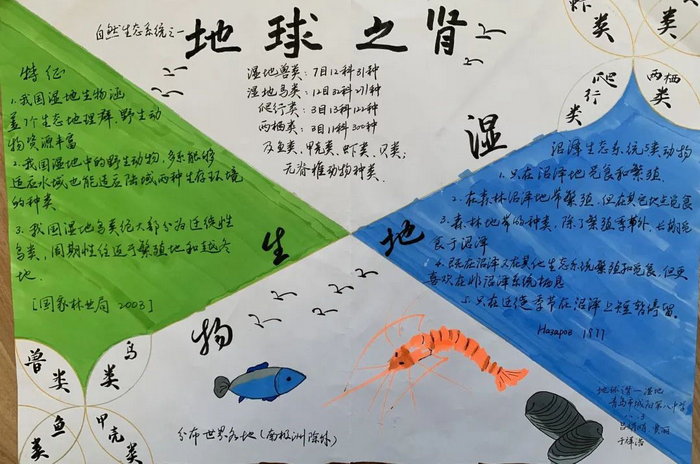 自然生态系统之一
地球之肾
湿地兽类：7目12科31种
湿地鸟类：12目32科271种
爬行类：3目13科122种
两栖类：3目11科300种
及鱼类、甲壳类、虾类、贝类、
无脊椎动物种类.
特征
1.我国湿地生物涵
盖7个生态地理群，野生动
物资源丰富
2.我国湿地中的野生动物，多系能够
适应水域也能适应陆域两种生存环境
的种类.
3.我国湿地鸟类绝大部分为迁徙性
鸟类，周期性往返于繁殖地和越冬
地.
[国家林业局 2003]
湿
地
生
物
虾类
类
爬行类
两栖类
沼泽生态系统5类动物
1.只在沼泽地觅食和繁殖
2.在森林沼泽地带繁殖，但在其他
3.森林地带的种类，除了繁殖季节外，长期觅
食于沼泽
4.既在沼泽又在其他生态系统繁殖和觅食，但更
喜欢在非沼泽系统栖息
5.只在迁徙季节在沼泽上短暂停留.
Назаров 1977
兽类
鸟类
鱼类
甲壳类
分布世界各地（南极洲除外）
地球之肾—湿地
青岛市城阳第八中学